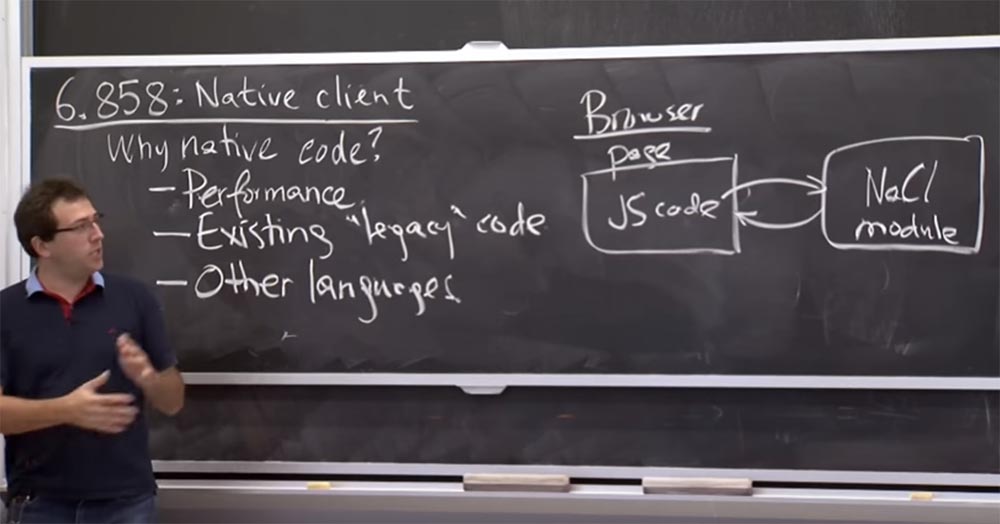 6.858: Native client
Why native code?
– Performance
– Existing "legacy" code
– Other languages
Browser
page
JS code
NaCl
module